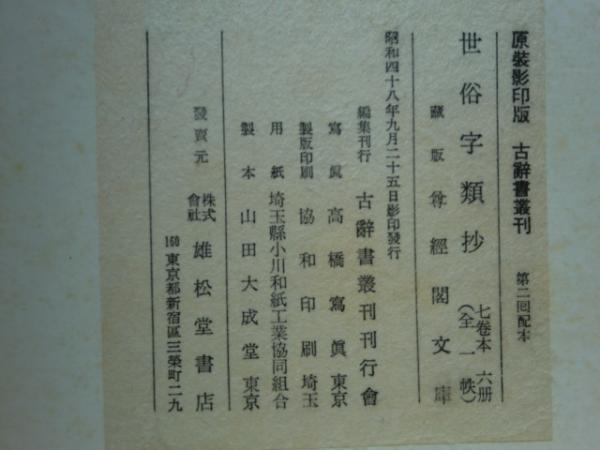 原裝影印版　古辭書叢刊　第二回配本
世俗字類抄　七卷本　六册
（全一帙）
藏版　尊經閣文庫
昭和四十八年九月二十五日影印發行
編集刊行　古辭書叢刊刊行會
寫眞　高橋寫眞　東京
製版印刷　協和印刷　埼玉
用紙　埼玉縣小川和紙工業協同組合
製本　山田大成堂　東京
發賣元　株式會社　雄松堂書店
160 東京都新宿區三榮町二九